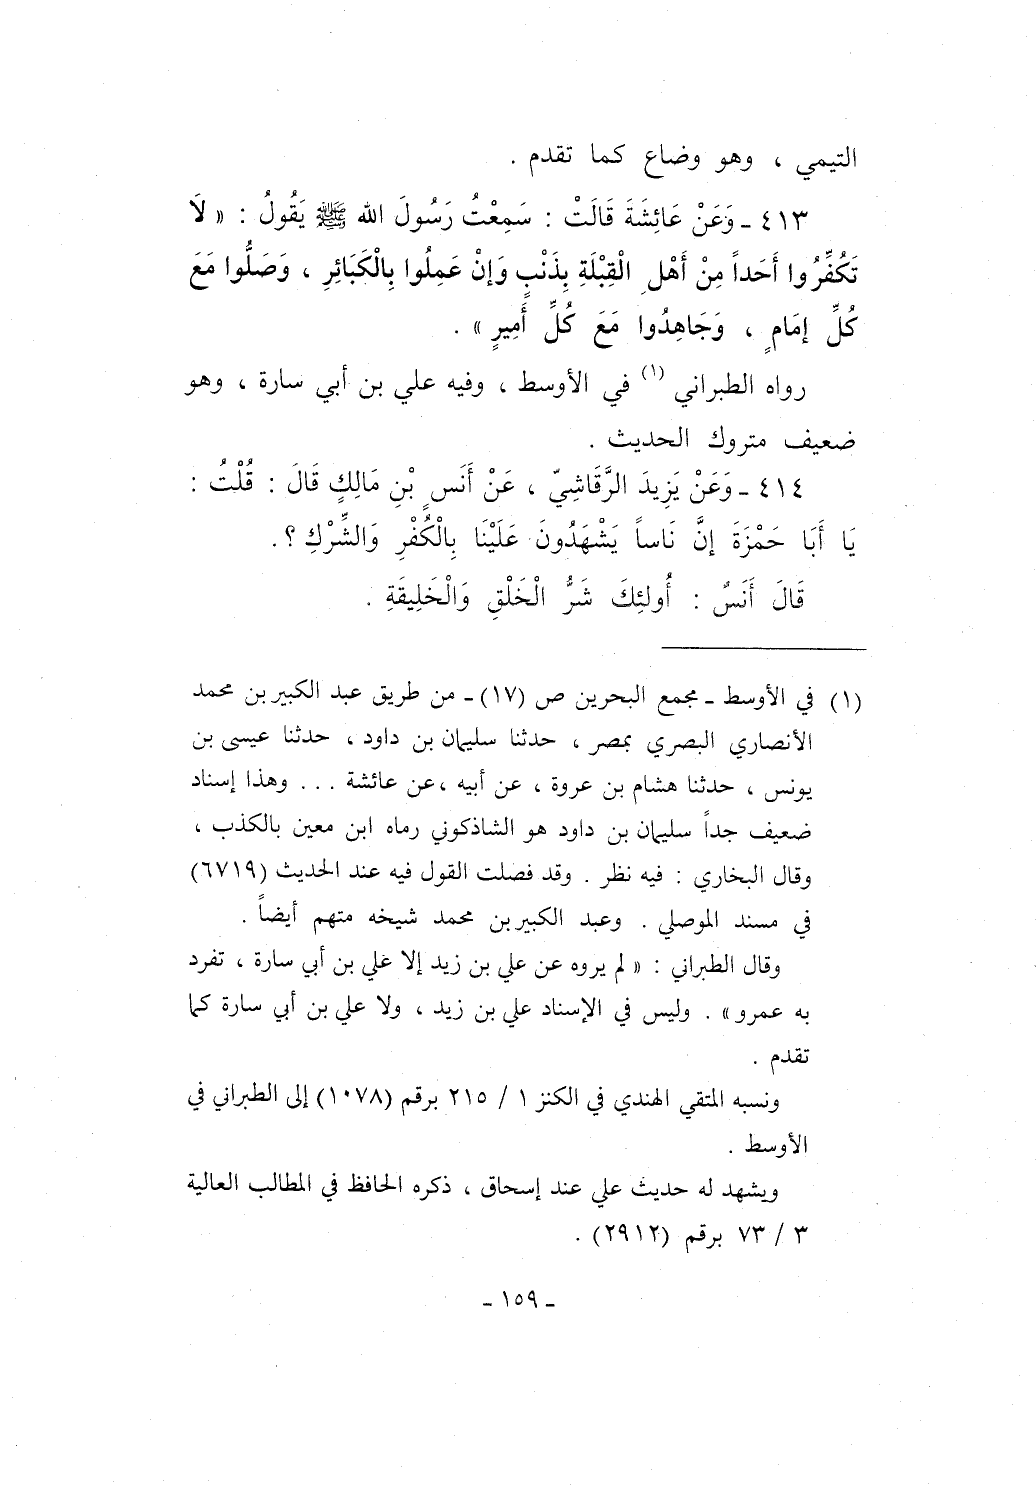 التيمي ، وهو وضاع كما تقدم .
٤١٣ ـ وَعَنْ عَائِشَةَ قَالَتْ : سَمِعْتُ رَسُولَ الله ﷺ يَقُولُ : « لَا
تَكُفِّرُوا أَحَداً مِنْ أَهْلِ الْقِبْلَةِ بِذَنْبٍ وَإنْ عَمِلُوا بِالْكَبَائِرِ ، وَصَلُّوا مَعَ
كُلِّ إمَامٍ ، وَجَاهِدُوا مَعَ كُلِّ أَمِيرٍ » .
رواه الطبراني (١) في الأوسط ، وفيه علي بن أبي سارة ، وهو
ضعيف متروك الحديث .
٤١٤ ـ وَعَنْ يَزِيدَ الرَّقَاشِيّ ، عَنْ أَنَسِ بْنِ مَالِكٍ قَالَ : قُلْتُ :
يَا أَبَا حَمْزَةَ إنَّ نَاساً يَشْهَدُونَ عَلَيْنَا بِالْكُفْرِ وَالشِّرْكِ ؟ .
قَالَ أَنَسٌ : أُولئِكَ شَرُّ الْخَلْقِ وَالْخَلِيقَةِ .
(١) في الأوسط ـ مجمع البحرين ص (١٧) ـ من طريق عبد الكبير بن محمد
الأنصاري البصري بمصر ، حدثنا سليمان بن داود ، حدثنا عيسى بن
يونس ، حدثنا هشام بن عروة ، عن أبيه ، عن عائشة ... وهذا إسناد
ضعيف جداً سليمان بن داود هو الشاذكوني رماه ابن معين بالكذب ،
وقال البخاري : فيه نظر . وقد فصلت القول فيه عند الحديث (٦٧١٩)
في مسند الموصلي . وعبد الكبير بن محمد شيخه متهم أيضاً .
وقال الطبراني : « لم يروه عن علي بن زيد إلا علي بن أبي سارة ، تفرد
به عمرو » . وليس في الإسناد علي بن زيد ، ولا علي بن أبي سارة كما
تقدم .
ونسبه المتقي الهندي في الكنز ١ / ٢١٥ برقم (١٠٧٨) إلى الطبراني في
الأوسط .
ويشهد له حديث علي عند إسحاق ، ذكره الحافظ في المطالب العالية
٣ / ٧٣ برقم (٢٩١٢) .
ـ ١٥٩ ـ